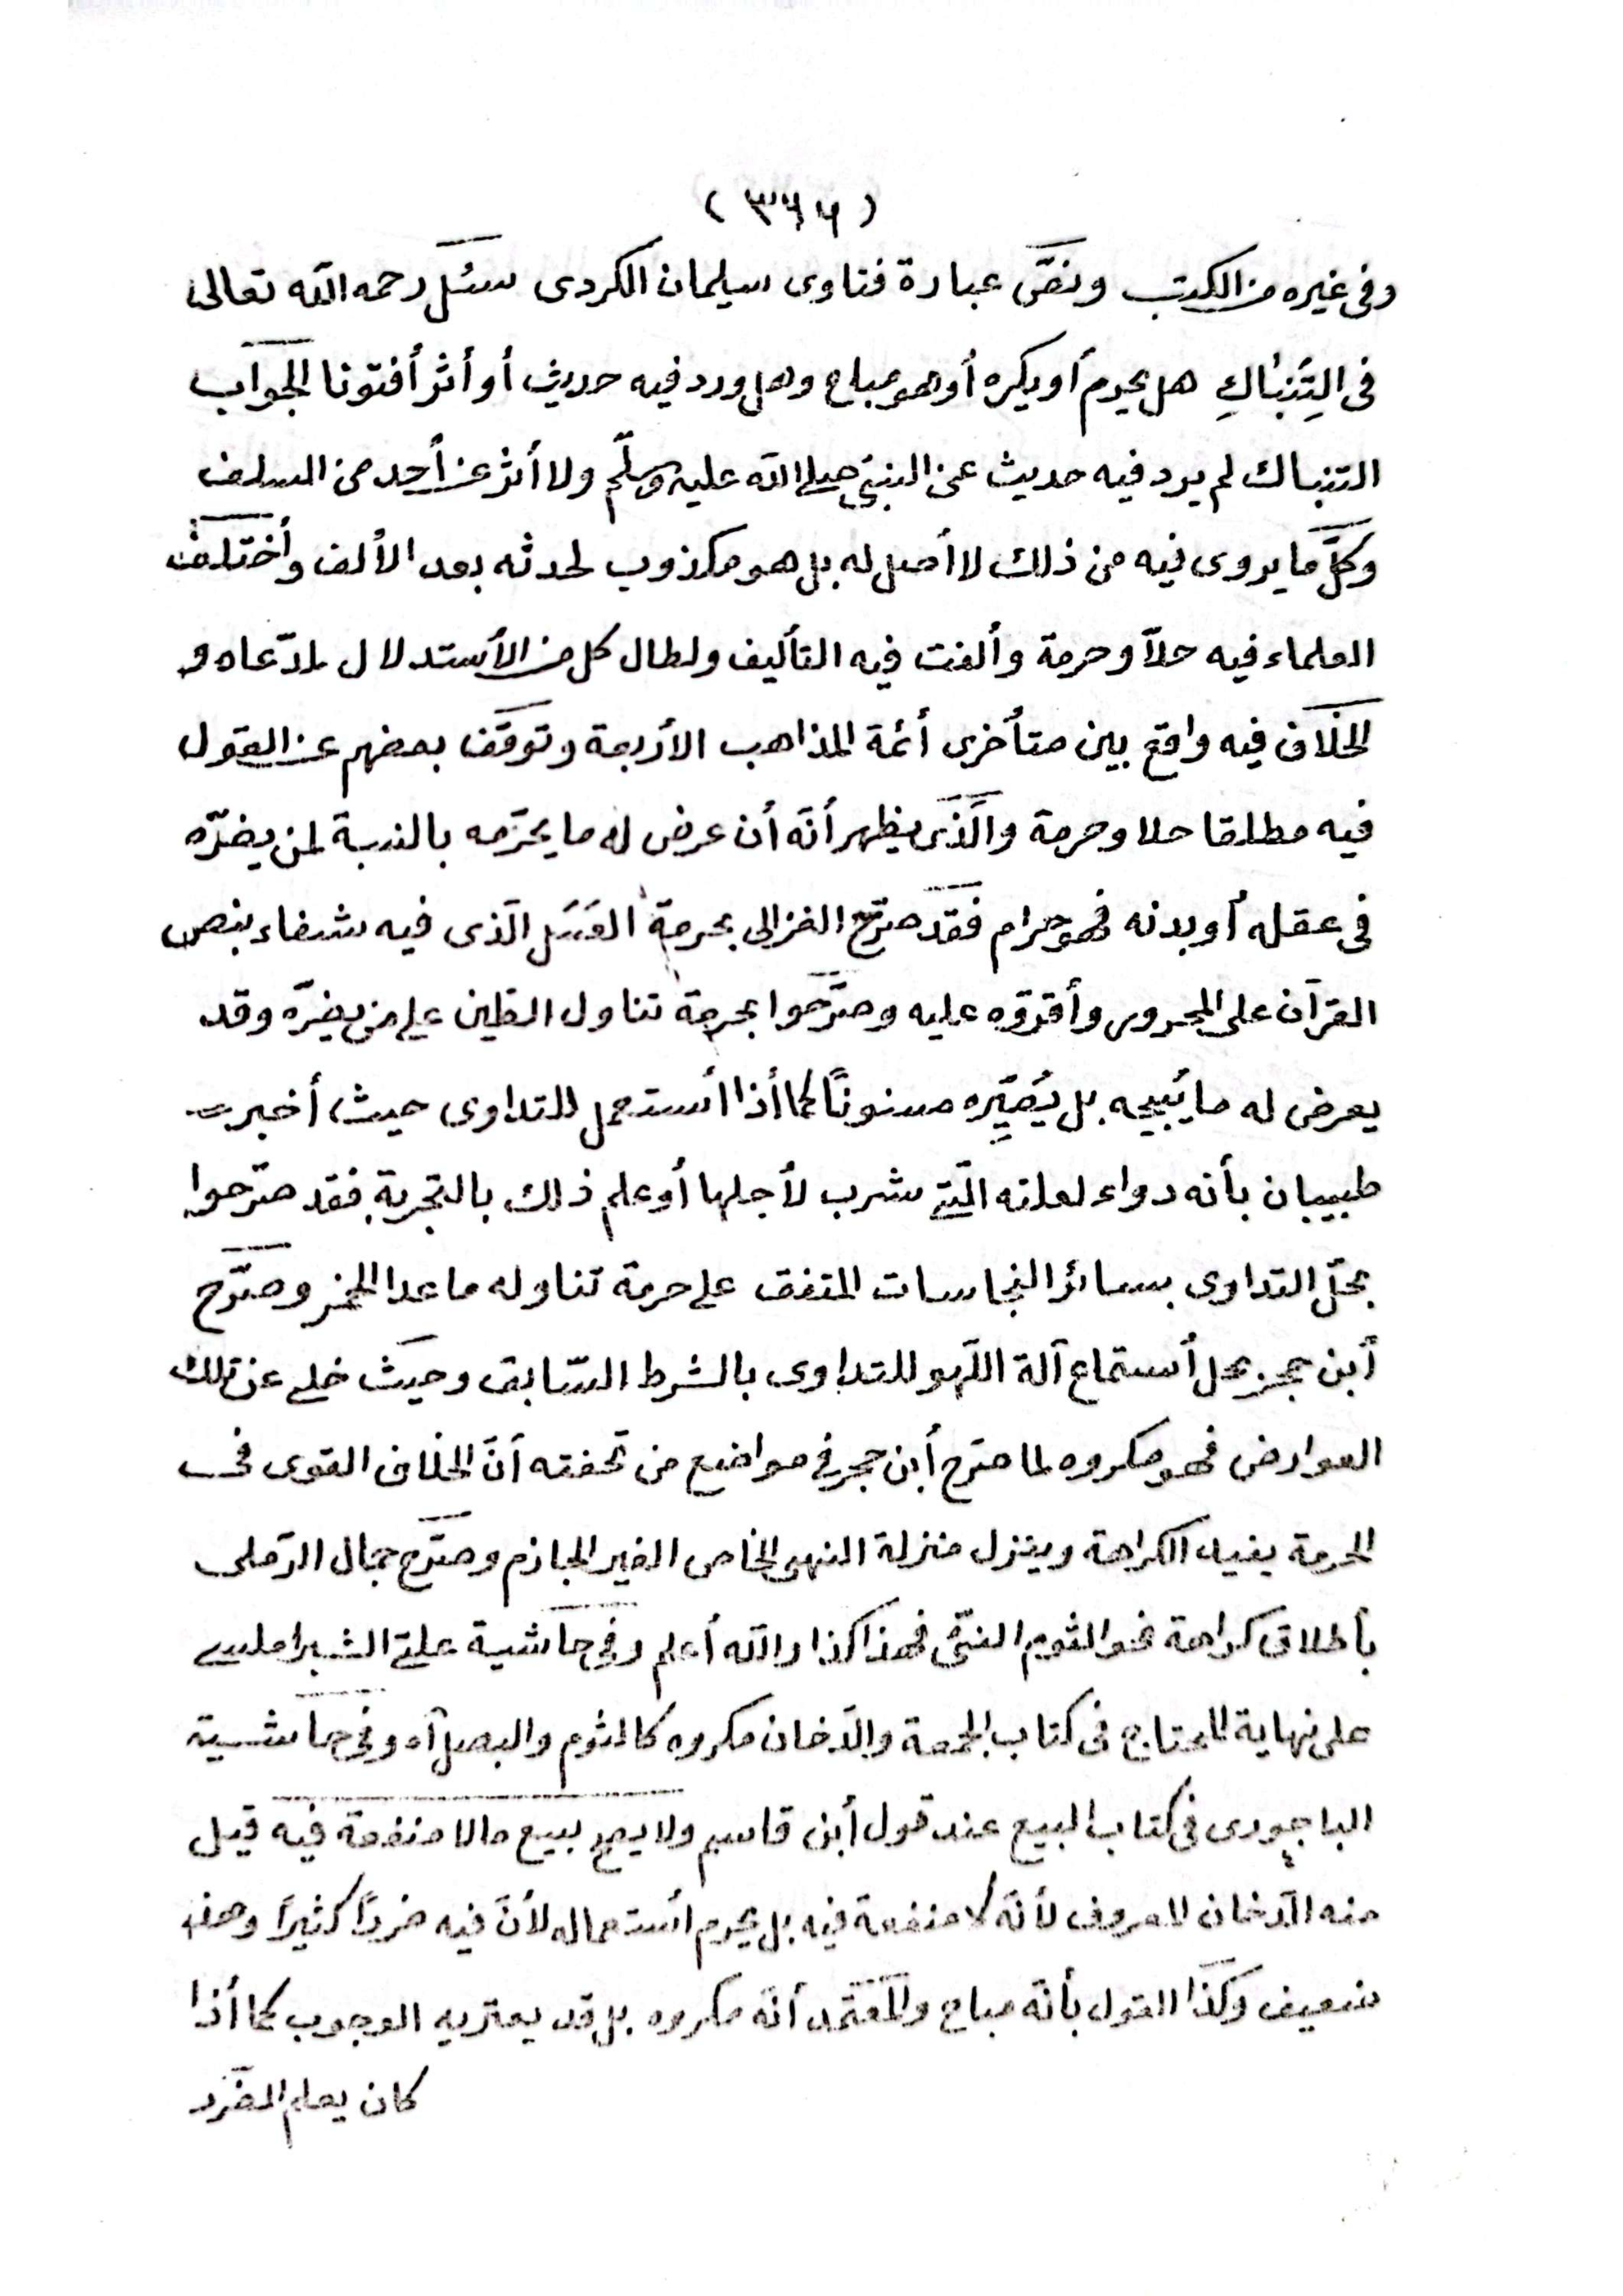 ( ٣٦٦ )
وفى غيره من الكتب ونصّ عبارة فتاوى سيلمان الكردى سئل رحمه الله تعالى
فى التِنْباكِ هل يحرم أو يكره أو هو مباح وهل ورد فيه حديث أو أثر أفتونا الجواب
التنباك لم يرد فيه حديث عن النبىّ صلى الله عليه وسلّم ولا أثر عن أحد من السلف
وكلّ ما يروى فيه من ذلك لا أصل له بل هو مكذوب لحدثه بعد الألف وأختلف
العلماء فيه حلاّ وحرمة وألفت فيه التأليف واطال كل من الأستدلال لمدّعاه و
الخلاف فيه واقع بين متأخرى أئمة المذاهب الأربعة وتوقّف بعضهم عن القول
فيه مطلقا حلا وحرمة والّذى يظهر أنّه أن عرض له ما يحرّمه بالنسبة لمن يضرّه
فى عقله أو بدنه فهو حرام فقد صرّح الغزالى بحرمة العسل الّذى فيه شفاء بنص
القرآن على المحرور وأقرّوه عليه وصرّحوا بحرمة تناول الطين على من يضرّه وقد
يعرض له ما يُبيحه بل يُصَيِّره مسنونًا كما أذا أستعمل للتداوى حيث أخبر
طبيبان بأنه دواء لعلته الّتى شرب لأجلها أو علم ذلك بالتجربة فقد صرّحوا
بحلّ التداوى بسائر النجاسات المتفق على حرمة تناوله ما عدا الخمر وصرّح
أبن حجر بحل أستماع آلة اللّهو للتداوى بالشرط السّابق وحيث خلى عن تلك
العوارض فهو مكروه لما صرّح أبن حجر فى مواضع من تحفته أنّ الخلاف القوى فى
الحرمة يفيد الكراهة وينزل منزلة النهى الخاص الغير الجازم وصرّح جمال الرّملى
بأطلاق كراهة نحو الثوم النىّ فهذا كذا والله أعلم وفى حاشية علىّ الشبراملسى
على نهاية المحتاج فى كتاب الجمعة والدّخان مكروه كالثوم والبصل آه وفى حاشية
الباجورى فى كتاب البيع عند قول أبن قاسم ولا يصح بيع مالا منفعة فيه قيل
منه الدّخان المعروف لأنّه لا منفعة فيه بل يحرم أستعماله لأنّ فيه ضررًا كثيرًا وهذا
ضعيف وكذا القول بأنّه مباح والمعتمد أنّه مكروه بل قد يعتريه الوجوب كما أذا
كان يعلم الضرر